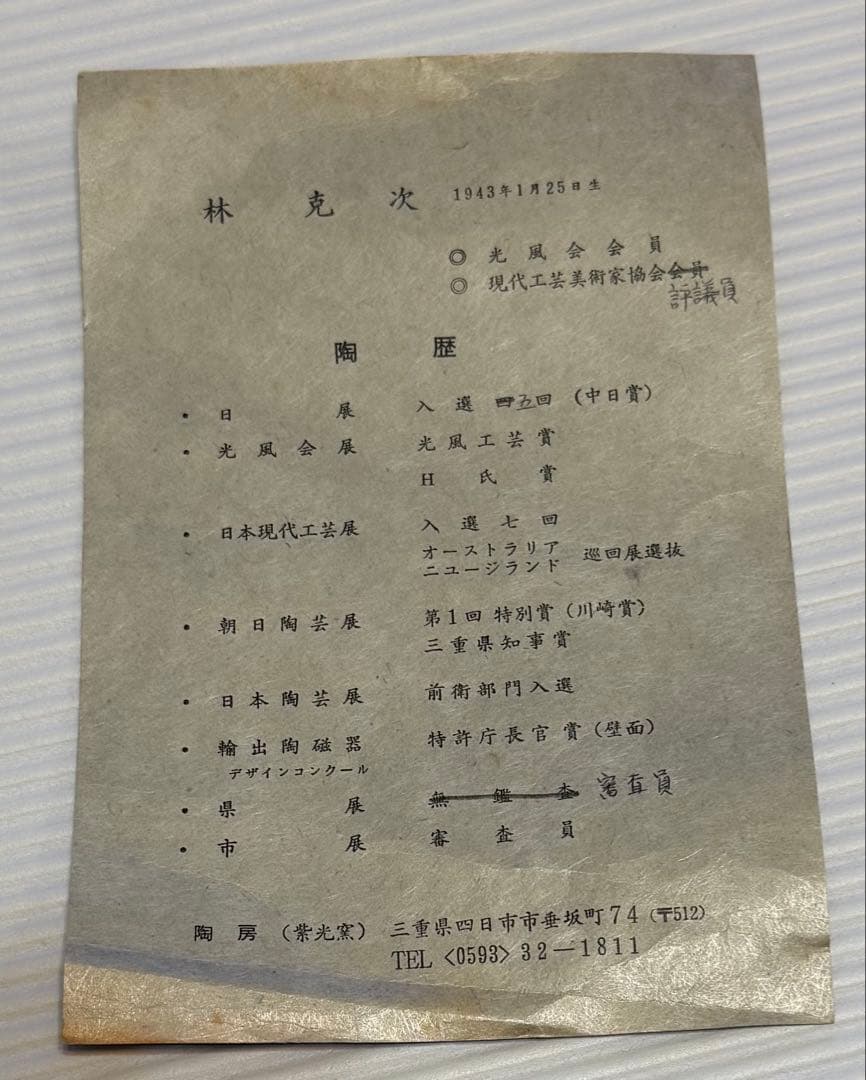 林克次 1943年1月25日生
◎ 光風会会員
◎ 現代工芸美術家協会会員
評議員
陶歴
・日展 入選四五回（中日賞）
・光風会展 光風工芸賞
H氏賞
・日本現代工芸展 入選七回
オーストラリア
ニュージランド 巡回展選抜
・朝日陶芸展 第1回特別賞（川崎賞）
三重県知事賞
・日本陶芸展 前衛部門入選
・輸出陶磁器 特許庁長官賞（壁面）
デザインコンクール
・県展 無鑑査 審査員
・市展 審査員
陶房（紫光窯） 三重県四日市市垂坂町74（〒512）
TEL〈0593〉32―1811